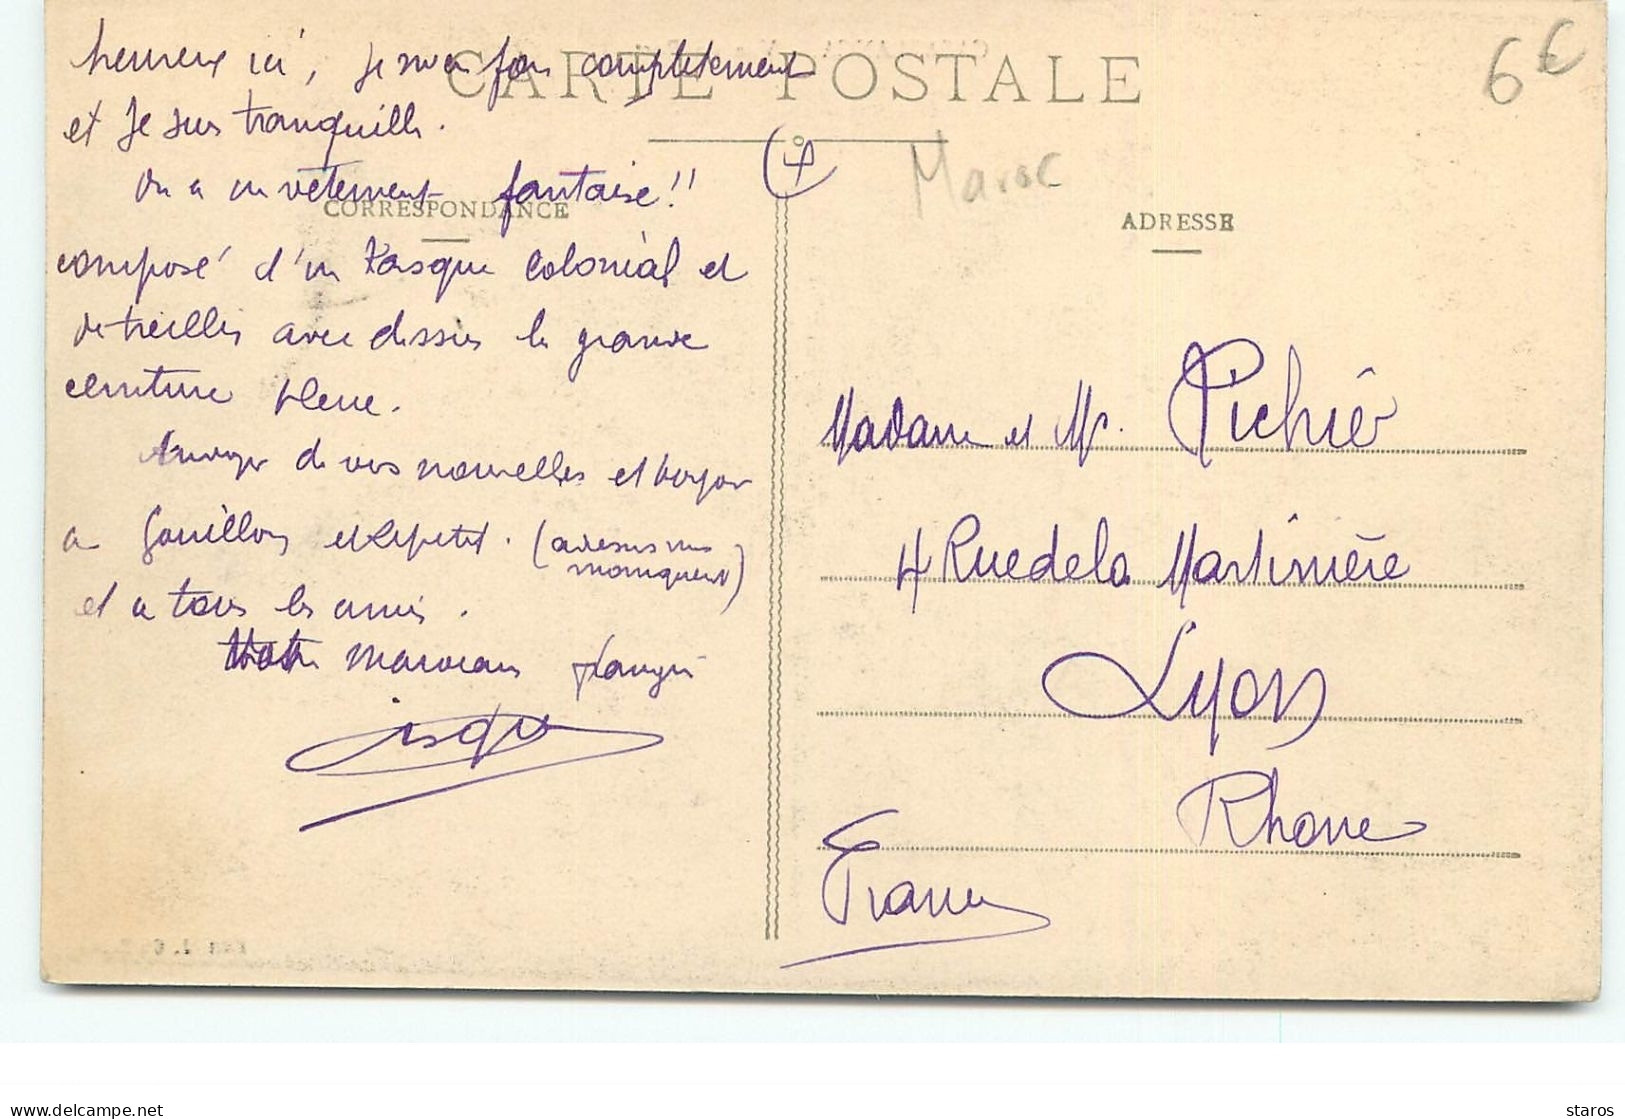 CARTE POSTALE
6€
Maroc
heureux ici, je m'en fou complètement
et Je suis tranquille.
On a un vêtement fantaisie!!
CORRESPONDANCE
composé d'un Kasque Colonial et
de treillis avec dessus la grande
ceinture bleue.
Envoyer de vos nouvelles et bonjour
a Gouillon et Repetit. (adresses me
manquent)
et a tous les amis.
Votre marocain
ADRESSE
Madame et Mr. Pichié
4 Rue de la Martinière
Lyon
Rhone
France
delcampe.net
staros